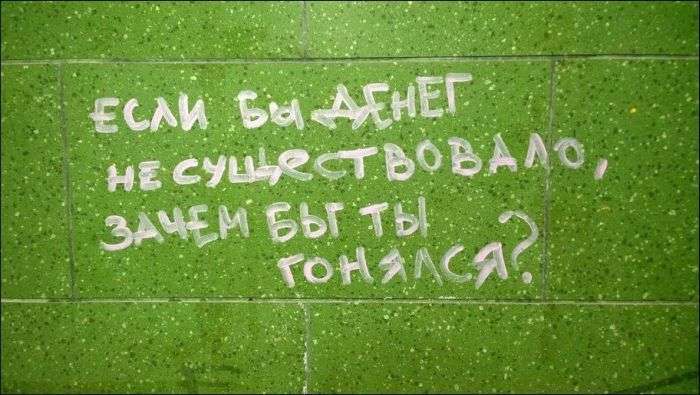 ЕСЛИ БЫ ДЕНЕГ
НЕ СУЩЕСТВОВАЛО,
ЗАЧЕМ БЫ ТЫ
ГОНЯЛСЯ?